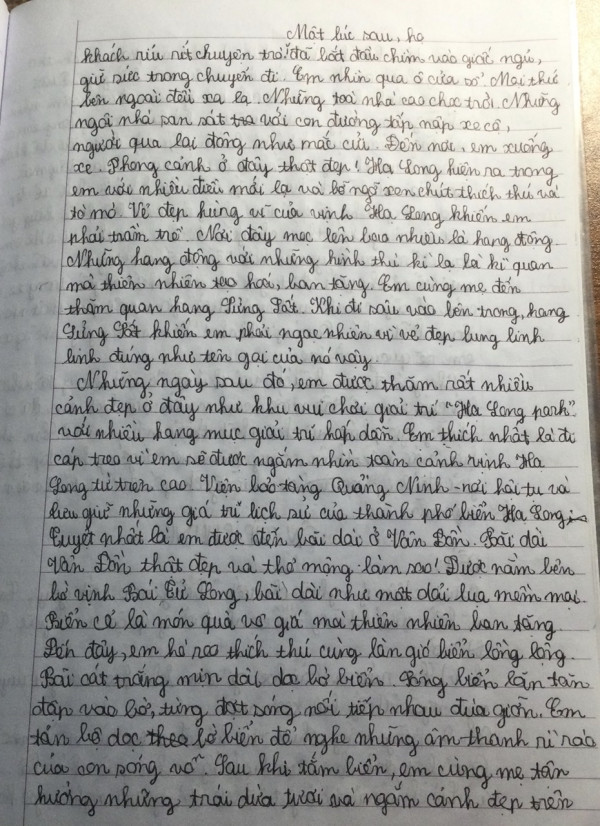 Một lúc sau, họ
khách ríu rít chuyện trò! đã bắt đầu chìm vào giấc ngủ,
giữ sức trong chuyến đi. Em nhìn qua ô cửa sổ. Mọi thứ
bên ngoài đều xa lạ. Những toà nhà cao chọc trời. Những
ngôi nhà san sát trà với con đường tấp nập xe cộ,
người qua lại đông như mắc cửi. Đến nơi, em xuống
xe. Phong cảnh ở đây thật đẹp! Hạ Long hiện ra trong
em với nhiều điều mới lạ và bỡ ngỡ xen chút thích thú và
tò mò. Vẻ đẹp hùng vĩ của vịnh Hạ Long khiến em
phải trầm trồ. Nơi đây mọc lên bao nhiêu là hang động.
Những hang động với những hình thù kì lạ là kì quan
mà thiên nhiên tạo hoá, ban tặng. Em cùng mẹ đến
thăm quan hang Sửng Sốt. Khi đi sâu vào bên trong, hang
Sửng Sốt khiến em phải ngạc nhiên vì vẻ đẹp lung linh
linh đúng như tên gọi của nó vậy.
Những ngày sau đó, em được thăm rất nhiều
cảnh đẹp ở đây như khu vui chơi giải trí "Hạ Long park"
với nhiều hạng mục giải trí hấp dẫn. Em thích nhất là đi
cáp treo vì em sẽ được ngắm nhìn toàn cảnh vịnh Hạ
Long từ trên cao. Viện bảo tàng Quảng Ninh - nơi hội tụ và
lưu giữ những giá trị lịch sử của thành phố biển Hạ Long
Tuyệt nhất là em được đến bãi dài ở Vân Đồn. Bãi dài
Vân Đồn thật đẹp và thơ mộng làm sao! Được nằm bên
bờ vịnh Bái Tử Long, bãi dài như một dải lụa mềm mại.
Biển cả là món quà vô giá mà thiên nhiên ban tặng.
Đến đây, em hò reo thích thú cùng làn gió biển lồng lộng.
Bãi cát trắng mịn dài dọc bờ biển. Sóng biển lăn tăn
đập vào bờ, từng đợt sóng nối tiếp nhau đùa giỡn. Em
tản bộ dọc theo bờ biển để nghe những âm thanh rì rào
của con sóng vỗ. Sau khi tắm biển, em cùng mẹ tận
hưởng những trái dừa tươi và ngắm cảnh đẹp trên